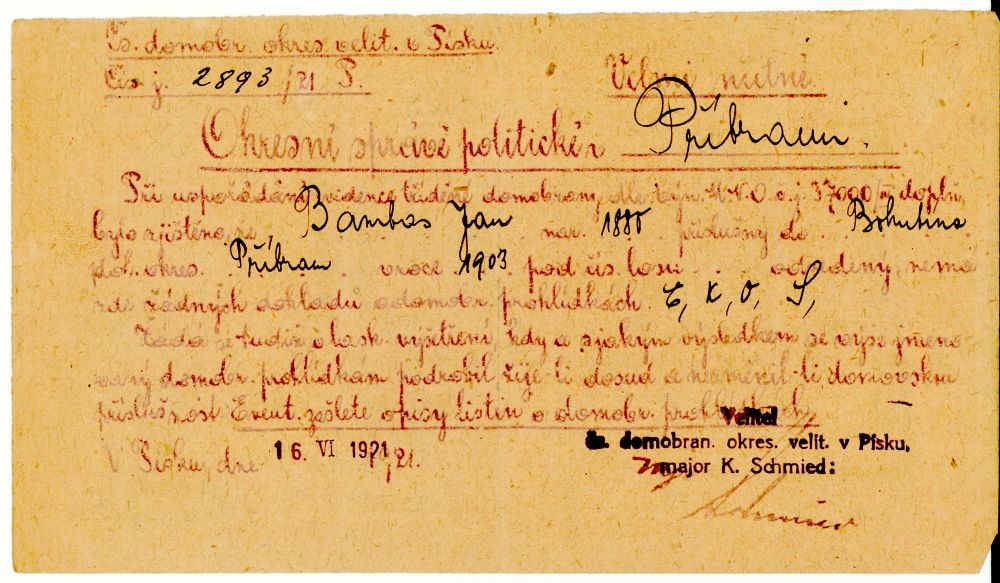 Čs. domobr. okres. velit. v Písku.
Čís. j. 2893/21 P. Velmi nutné
Okresní správě politické v Příbrami.
Při uspořádání evidence třídění domobrany dle výn. M.N.O. č.j. 37000 doplň.
bylo zjištěno, že Bambas Jan nar. 1880 příslušný do Bohutína
pol. okres. Příbram v roce 1903 pod čís. losu odvedený, nemá
zde žádných dokladů o domobr. prohlídkách. E, K, O, S,
Žádá se tudíž o lask. vyšetření, kdy a s jakým výsledkem se výše jmeno-
vaný domobr. prohlídkám podrobil, žije-li dosud a nezměnil-li domovskou
příslušnost. Event. zašlete opisy listin o domobr. prohlídkách.
V Písku, dne 16. VI 1921 /21.
Velitel
čs. domobran. okres. velit. v Písku,
major K. Schmied:
Schmied